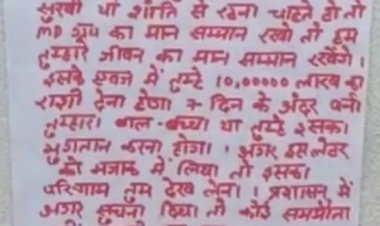 सुरक्षी या शांति से रहना चाहते हो तो
MD ग्रुप का मान सम्मान रखो तो हम
तुम्हारे जीवन का मान सम्मान रखेंगे।
इसके एवज में तुम्हे 10,00000 लाख का
राशी देना होगा 7 दिन के अंदर वर्ना
तुम्हारा बाल-बच्चा या तुम्हे इसका
भुगतान करना होगा। अगर इस लेटर
को मजाक में लिया तो इसका
परिणाम तुम देख लेना। प्रशासन में
अगर सुचना दिया तो कोई समझौता